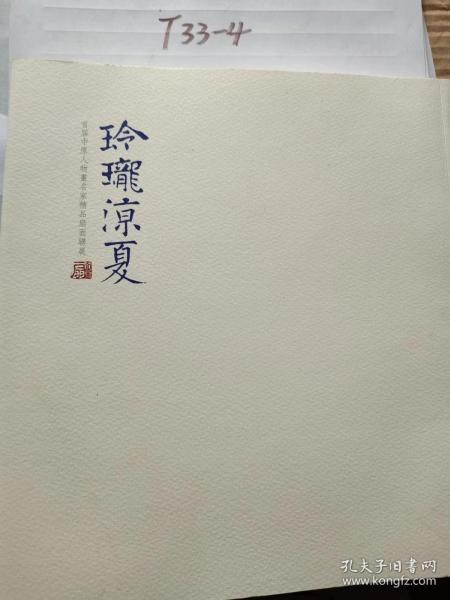 T33-4
玲瓏涼夏
首届中原人物畫名家精品扇面聯展
孔夫子旧书网
www.kongfz.com